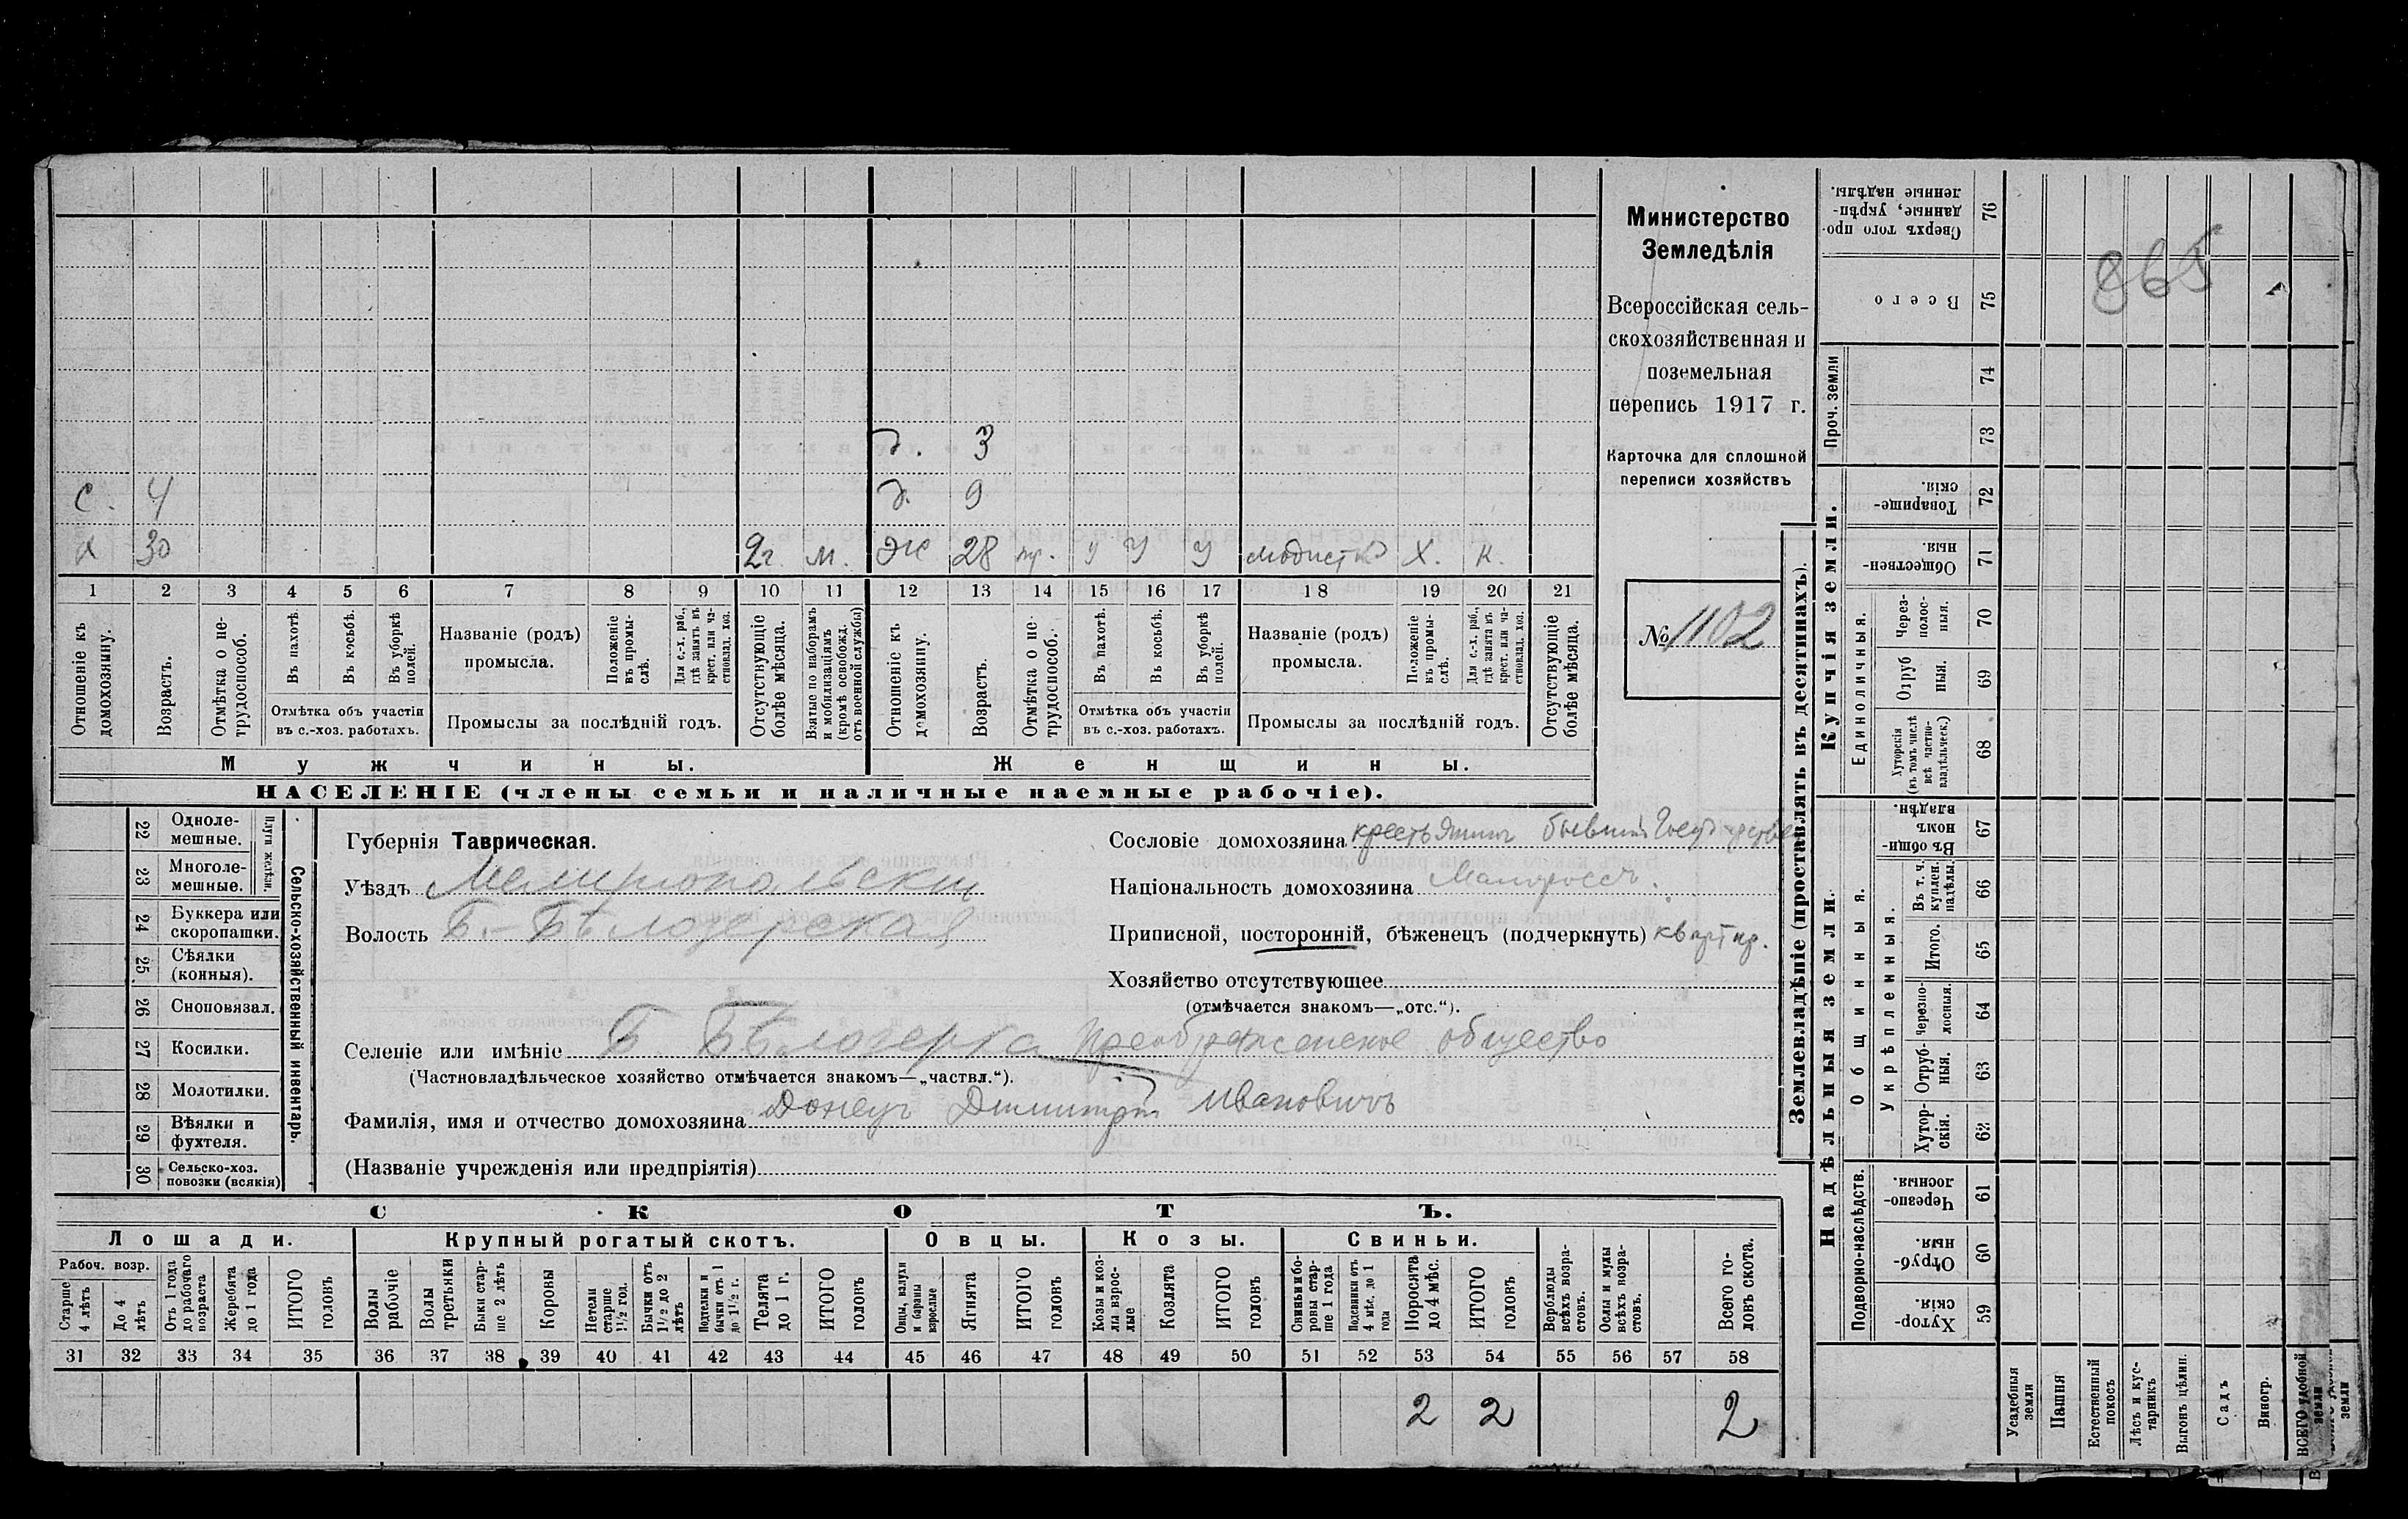 д. 3
с. 4 д. 9
х 30 2г. м. ж 28 пр. у у у модистка х. к.
1 2 3 4 5 6 7 8 9 10 11 12 13 14 15 16 17 18 19 20 21
Отношеніе къ домохозяину.
Возрастъ.
Отмѣтка о не-трудоспособ.
Въ пахотѣ.
Въ косьбѣ.
Въ уборкѣ полей.
Отмѣтка объ участіи
въ с.-хоз. работахъ.
Названіе (родъ)
промысла.
Положеніе въ промы-слѣ.
Для с.-х. раб., гдѣ занятъ въ крест. или ча-стновлад. хоз.
Промыслы за послѣдній годъ.
Отсутствующіе болѣе мѣсяца.
Взятые по наборамъ и мобилизаціямъ (кромѣ освобожд. отъ военной службы)
Отношеніе къ домохозяину.
Возрастъ.
Отмѣтка о не-трудоспособ.
Въ пахотѣ.
Въ косьбѣ.
Въ уборкѣ полей.
Отмѣтка объ участіи
въ с.-хоз. работахъ.
Названіе (родъ)
промысла.
Положеніе въ промы-слѣ.
Для с.-х. раб., гдѣ занята въ крест. или ча-стновлад. хоз.
Промыслы за послѣдній годъ.
Отсутствующіе болѣе мѣсяца.
Мужчины. Женщины.
НАСЕЛЕНІЕ (члены семьи и наличные наемные рабочіе).
Министерство
Земледѣлія
Всероссійская сель-
скохозяйственная и
поземельная
перепись 1917 г.
Карточка для сплошной
переписи хозяйствъ
№ 1102
22 Одноле-мешные.
23 Многоле-мешные.
Плуги желѣзн.
24 Буккера или скоропашки.
25 Сѣялки (конныя).
26 Сноповязал.
27 Косилки.
28 Молотилки.
29 Вѣялки и фухтеля.
30 Сельско-хоз. повозки (всякія)
Сельско-хозяйственный инвентарь.
Губернія Таврическая.
Уѣздъ Мелитопольскій
Волость Б.-Бѣлозерская
Сословіе домохозяина крестьянинъ бывшій
Національность домохозяина Малороссъ.
Приписной, посторонній, бѣженецъ (подчеркнуть) квартир.
Хозяйство отсутствующее
(отмѣчается знакомъ—„отс.“).
Селеніе или имѣніе Б. Бѣлозерка Преображенское общество
(Частновладѣльческое хозяйство отмѣчается знакомъ—„частвл.“).
Фамилія, имя и отчество домохозяина Донецъ Димитрій Ивановичъ
(Названіе учрежденія или предпріятія)
СКОТЪ.
Лошади. Крупный рогатый скотъ. Овцы. Козы. Свиньи.
Рабоч. возр.
Старше 4 лѣтъ
До 4 лѣтъ
Отъ 1 года до рабочаго возраста
Жеребята до 1 года
ИТОГО головъ
Волы рабочіе
Волы третьяки
Быки стар-ше 2 лѣтъ
Коровы
Нетели старше 1½ год.
Бычки отъ 1½ до 2 лѣтъ
Подтелки и бычки отъ 1 до 1½ г.
Телята до 1 г.
ИТОГО головъ
Овцы, валухи и бараны взрослые
Ягнята
ИТОГО головъ
Козы и коз-лы взрос-лые
Козлята
ИТОГО головъ
Свиньи и бо-ровы стар-ше 1 года
Подсвинки отъ 4 мѣс. до 1 года
Поросята до 4 мѣс.
ИТОГО головъ
Верблюды всѣхъ возра-стовъ.
Ослы и мулы всѣхъ возра-стовъ.
Всего го-ловъ скота.
31 32 33 34 35 36 37 38 39 40 41 42 43 44 45 46 47 48 49 50 51 52 53 54 55 56 57 58
2 2 2
Землевладѣніе (проставлять въ десятинахъ).
Сверхъ того про-данные, укрѣп-ленные надѣлы. 76
865
Всего 75
Проч. земли
74
73
Купчія земли.
Товарище-скія. 72
Обществен-ныя. 71
Единоличныя.
Через-полос-ныя. 70
Отруб-ныя. 69
Хуторскія (въ томъ числѣ всѣ частно-владѣльческ.) 68
Надѣльныя земли.
Общинныя.
Въ общин-номъ владѣн. 67
Укрѣпленныя.
Въ т. ч. куплен. надѣлы. 66
Итого. 65
Черезпо-лосныя. 64
Отруб-ныя. 63
Хутор-скія. 62
Подворно-наслѣдств.
Черезпо-лосныя. 61
Отруб-ныя. 60
Хутор-скія. 59
Усадебныя земли
Пашня
Естественный покосъ
Лѣсъ и кус-тарникъ
Выгонъ цѣлин.
Садъ
Виногр.
ВСЕГО удобной земли